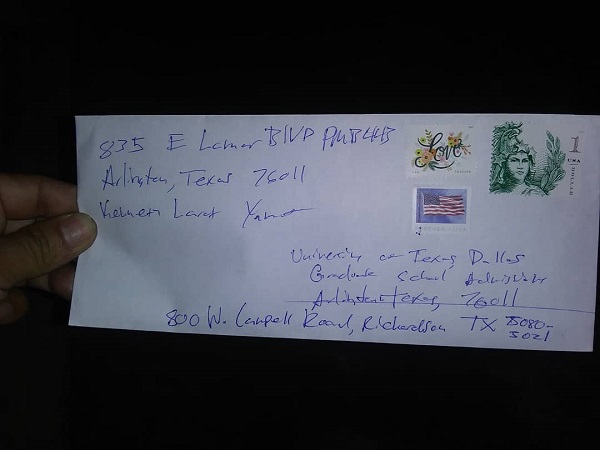 835 E Lamar BlVD PMB44B
Arlington, Texas 76011
Kenneth
Love
FOREVER
USA
1
USA
DOLLAR
University of Texas Dallas
Graduate School
Arlington Texas, 76011
800 W. Campell Road, Richardson TX 75080-
3021